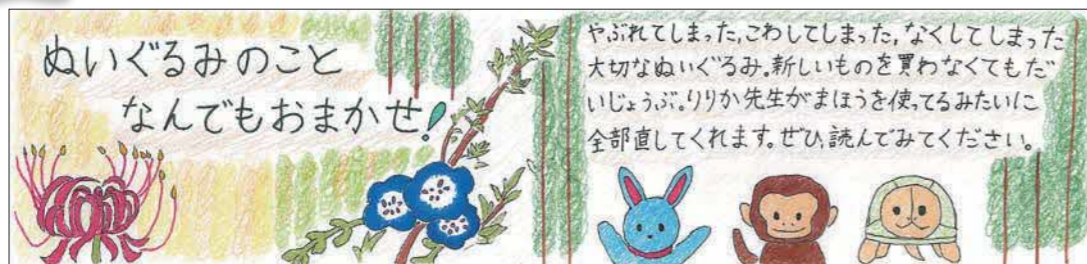 ぬいぐるみのこと
なんでもおまかせ!
やぶれてしまった,こわしてしまった,なくしてしまった
大切なぬいぐるみ。新しいものを買わなくてもだ
いじょうぶ。りりか先生がまほうを使ってるみたいに
全部直してくれます。ぜひ,読んでみてください。